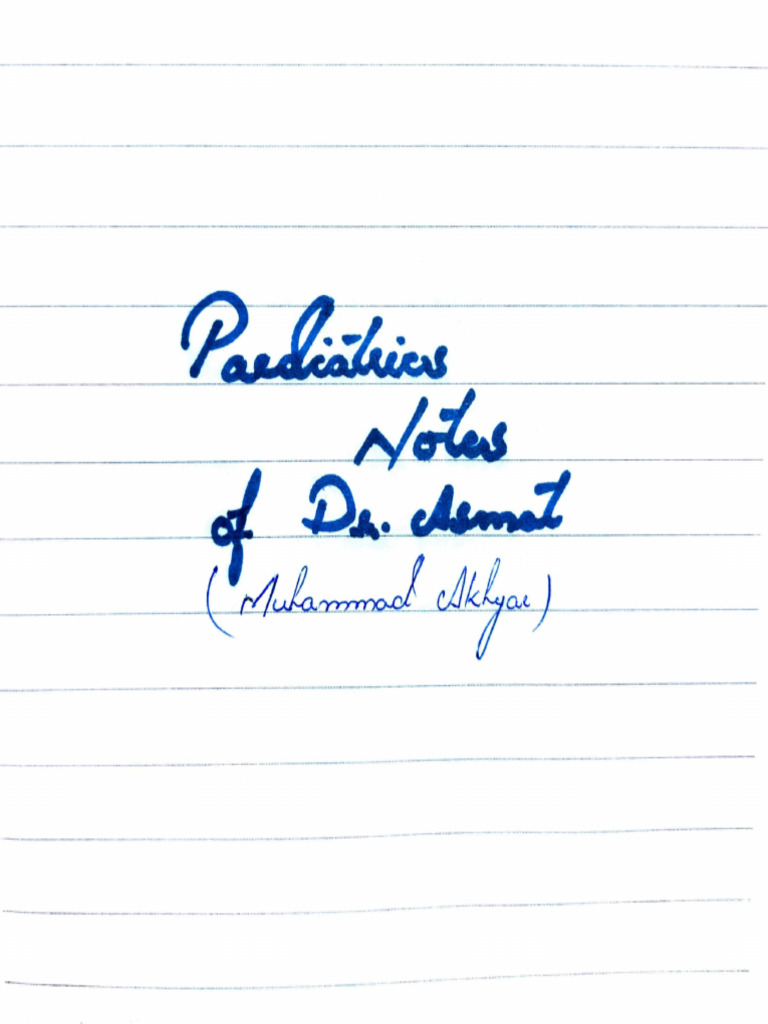 Paediatrics
Notes
of Dr. Asmat
(Muhammad Akhyar)